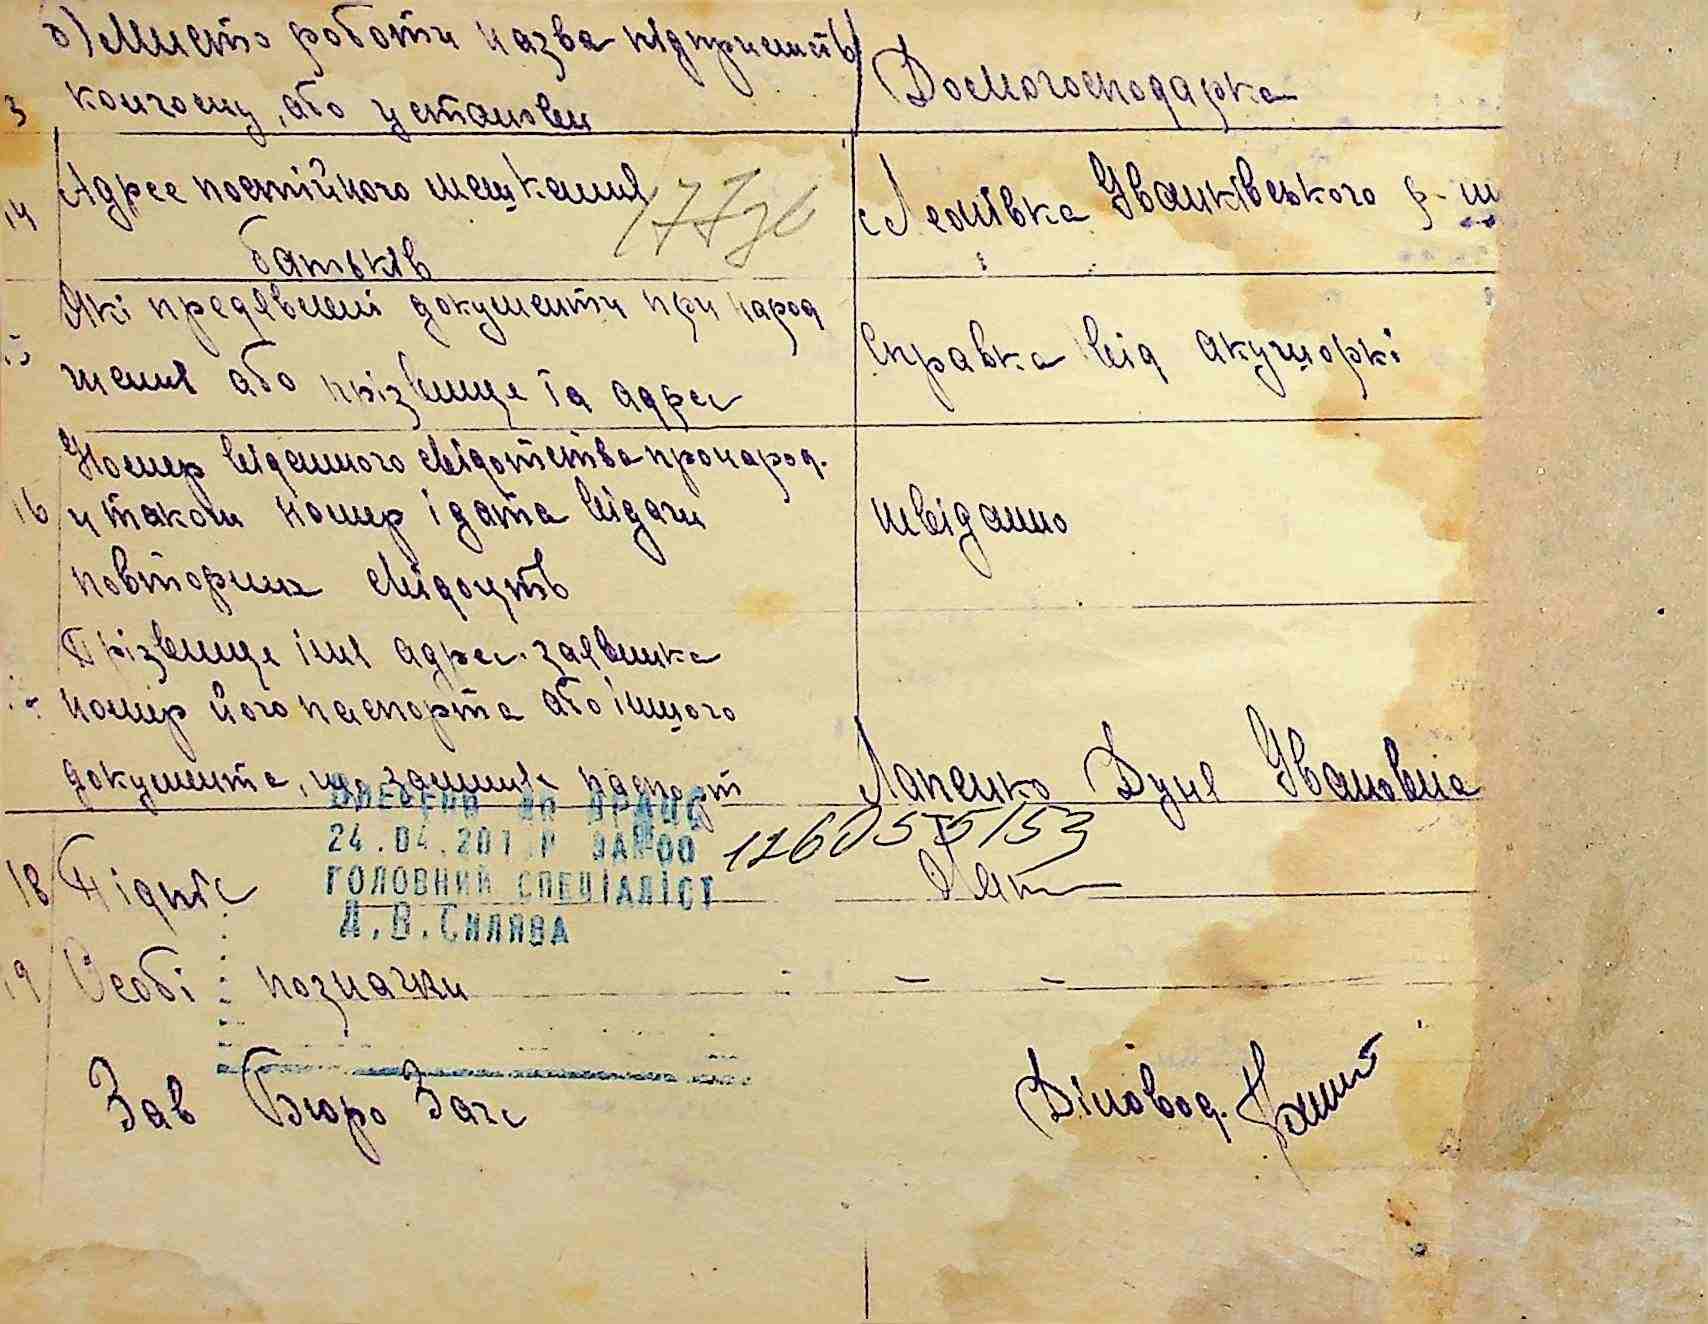 б) Место роботи назва підприємств
Домогосподарка
3 концому, або установи
14 Адрес постійного мешкання
с Леонівка Іванківського р-ш
177зв
батьків
15 Які предявлені документи при народ
Справка від акушоркі
женні або прізвище та адрес
Номер віданного свідотства про народ.
16 и також номер і дата відачи
невіданно
повторних свідоцтв
Прізвище імя адрес. заявника
номер його паспорта або іншого
документа, що заміняє паспорт
Лапенко Дуня Івановна
ВНЕСЕНО ДО ДРАЦС
24.04.201 Р ЗА №00
1260575153
18 Підпис
Лап
ГОЛОВНИЙ СПЕЦІАЛІСТ
Д.В.Силява
19 Особі позначки – –
Зав Бюро Загс
Діловод.